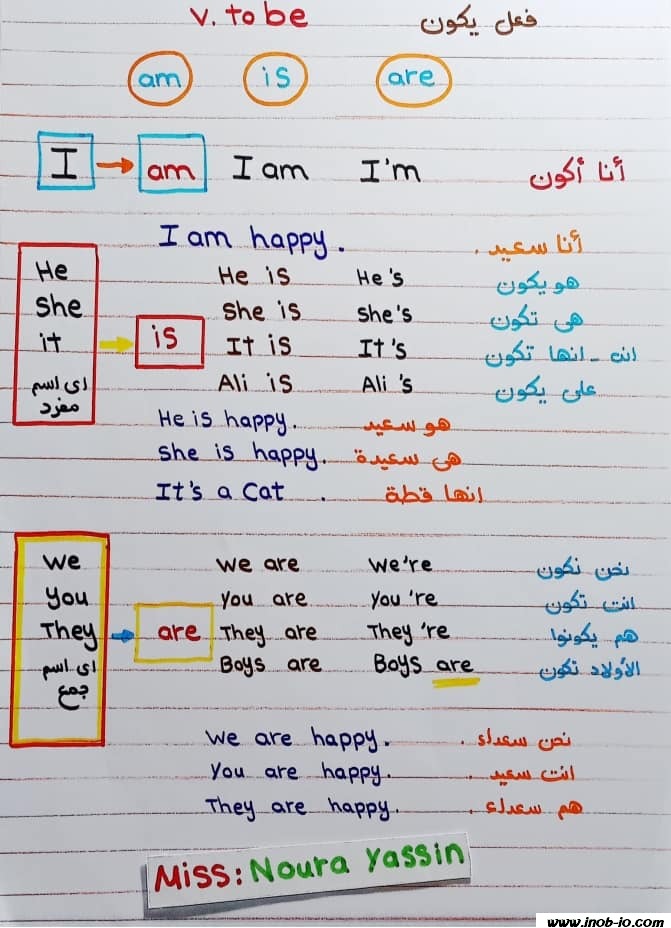 V. to be فعل يكون
am is are
I → am I am I'm أنا أكون
I am happy. أنا سعيد .
He He is He's هو يكون
She She is She's هى تكون
it → is It is It's انه - انها تكون
اى اسم مفرد Ali is Ali 's على يكون
He is happy. هو سعيد
She is happy. هى سعيدة
It's a Cat . انها قطة
we we are we're نحن نكون
you you are you 're انت تكون
They → are They are They 're هم يكونوا
اى اسم جمع Boys are Boys are الأولاد تكون
we are happy. نحن سعداء .
You are happy. انت سعيد .
They are happy. هم سعداء .
Miss: Noura Yassin
www.inob-io.com